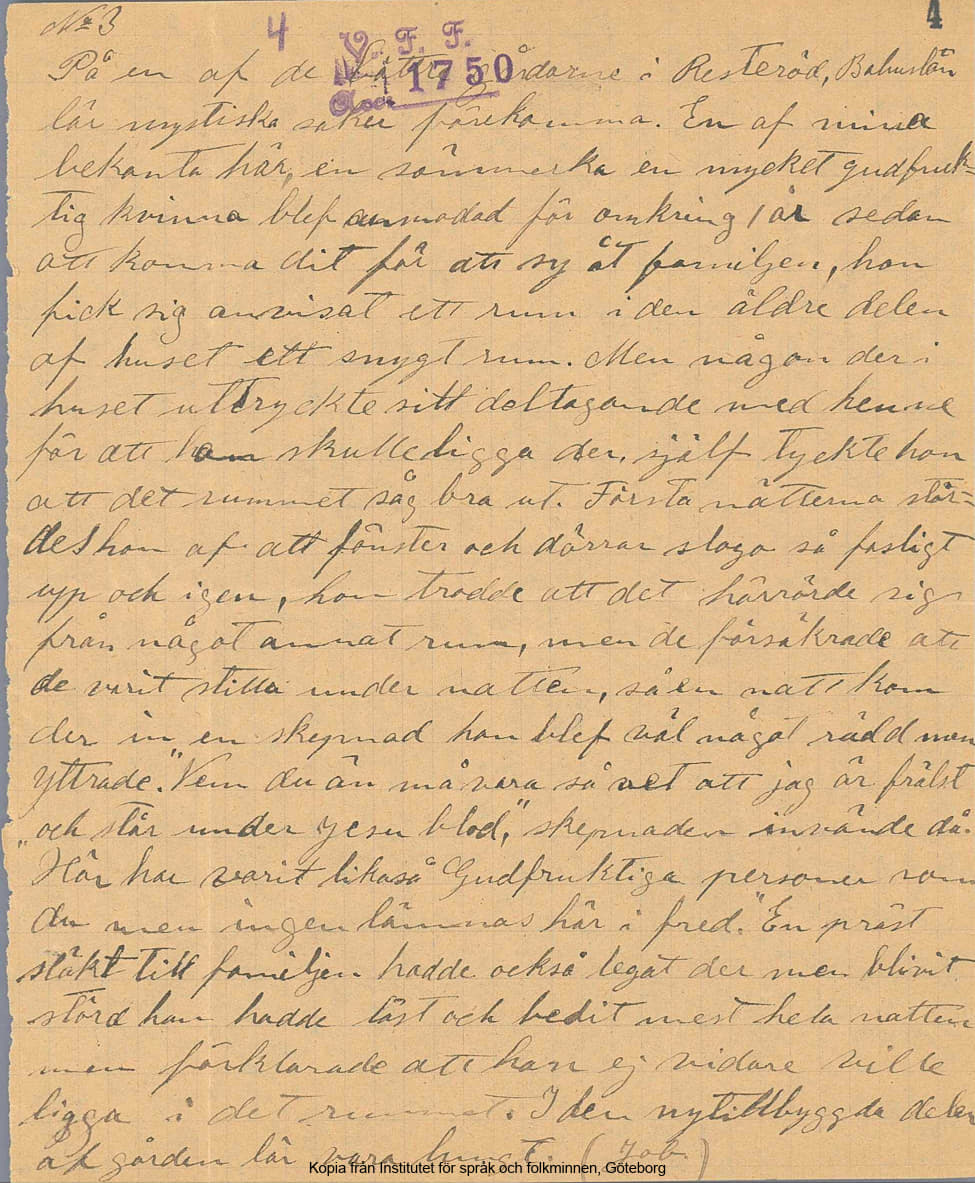 No 3
4
4
V. F. F.
Acc. 1750
På en af de bättre gårdarne i Resteröd, Bohuslän
lär mystiska saker förekomma. En af mina
bekanta här, en sömmerka en mycket gudfruk-
tig kvinna blef anmodad för omkring 1 år sedan
att komma dit för att sy åt familjen, hon
fick sig anvisat ett rum i den äldre delen
af huset ett snygt rum. Men någon der i
huset uttryckte sitt deltagande med henne
för att hon skulle ligga der, själf tyckte hon
att det rummet såg bra ut. Första nätterna stör-
des hon af att fönster och dörrar slogo så fasligt
upp och igen, hon trodde att det härrörde sig
från något annat rum, men de försäkrade att
de varit stilla under natten, så en natt kom
der in en skepnad hon blef väl något rädd men
yttrade. "Vem du än må vara så vet att jag är frälst
"och står under Jesu blod," skepnaden invände då.
Här har varit likaså Gudfruktiga personer som
du men ingen lämnas här i fred." En präst
släkt till familjen hadde också legat der men blivit
störd han hadde läst och bedit mest hela natten
men förklarade att han ej vidare ville
ligga i det rummet. I den nytillbyggda delen
af gården lär vara lungt. (Job.)
Kopia från Institutet för språk och folkminnen, Göteborg